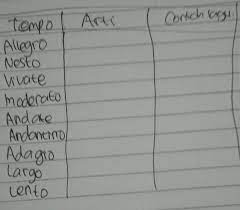 Tempo Arti Contoh lagu
Allegro
Vivate
moderato
Andate
Andantino
Adagio
Largo
Lento